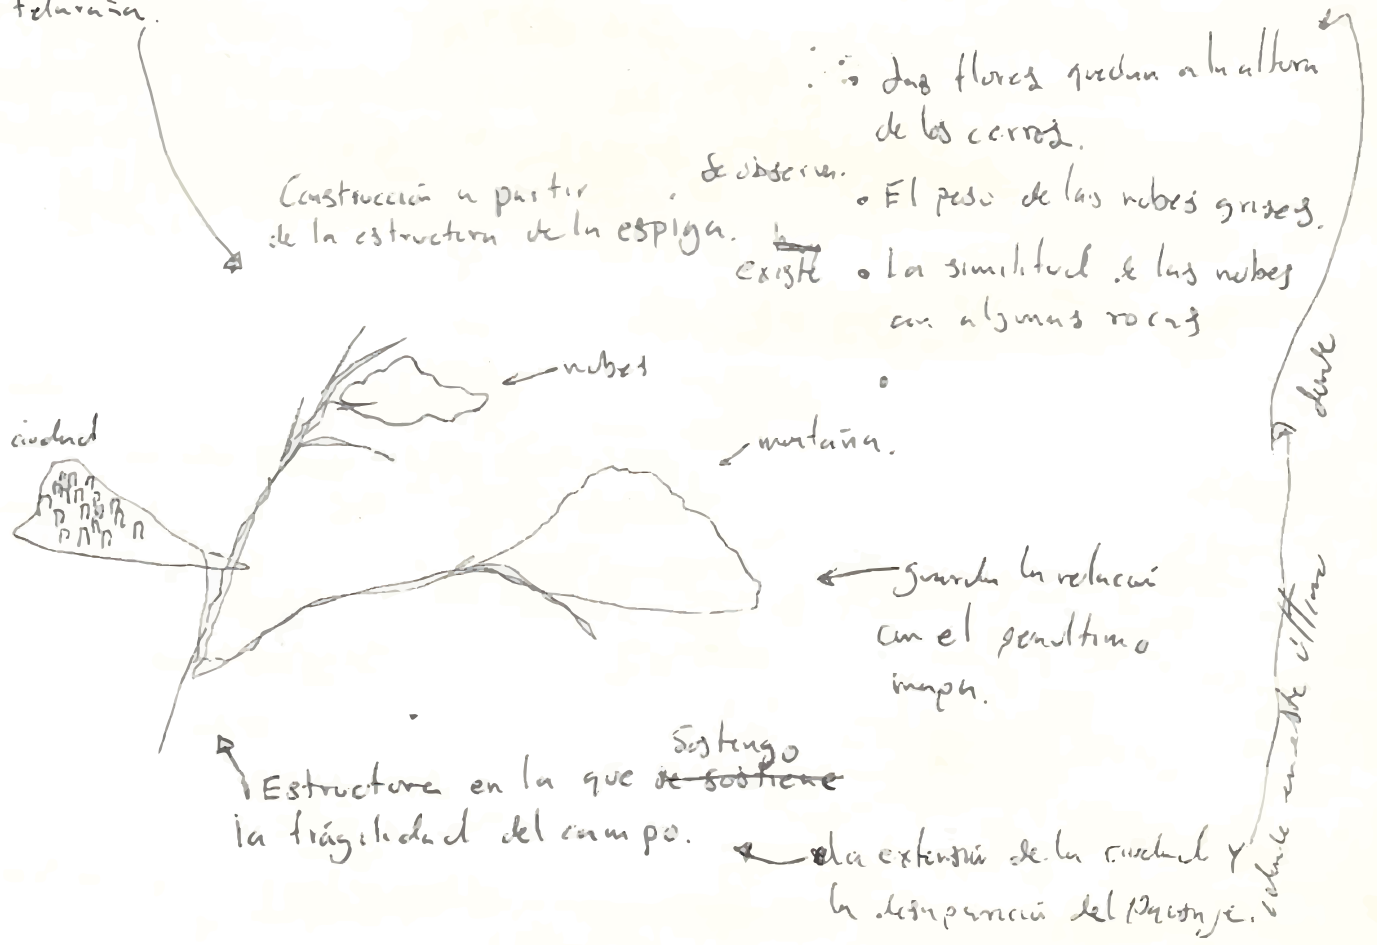 telaraña.
Construcción a partir
de la estructura de la espiga.
Las flores quedan a la altura
de los cerros.
Se observa.
El peso de las nubes grises.
existe
La similitud de las nubes
con algunas rocas
nubes
ciudad
montaña.
guarda la relación
con el penúltimo
mapa.
Sostengo
Estructura en la que se sostiene
la frágilidad del campo.
La extensión de la ciudad y
la desaparición del Paisaje.
en este último
donde